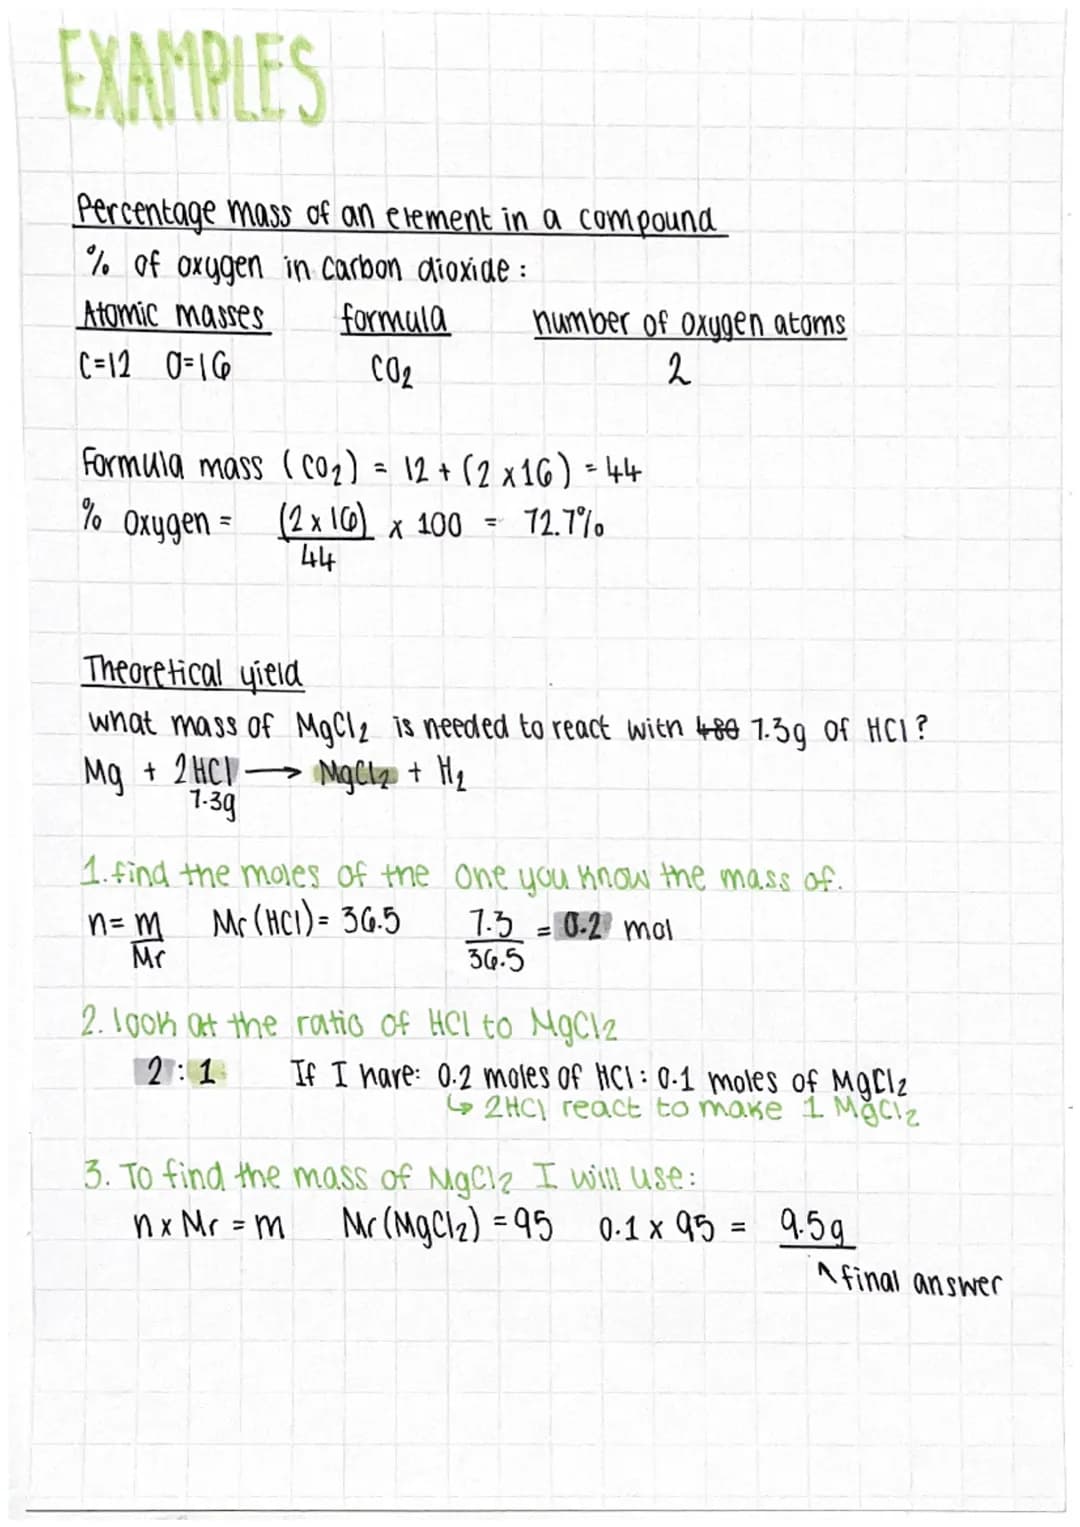 EXAMPLES
Percentage mass of an element in a compound
% of oxygen in carbon dioxide :
Atomic masses formula number of oxygen atoms
C=12 O=16 CO2 2
Formula mass (CO2) = 12 + (2 x 16) = 44
% oxygen = (2 x 16) x 100 = 72.7%
44
Theoretical yield
what mass of MgCl2 is needed to react with 480 7.3g of HCl?
Mg + 2HCl → MgCl2 + H2
7.3g
1. find the moles of the one you know the mass of.
n= m Mr (HCl)= 36.5 7.3 = 0.2 mol
Mr 36.5
2. look at the ratio of HCl to MgCl2
2 : 1 If I have: 0.2 moles of HCl : 0.1 moles of MgCl2
↳ 2HCl react to make 1 MgCl2
3. To find the mass of MgCl2 I will use:
n x Mr = m Mr (MgCl2) = 95 0.1 x 95 = 9.5g
↑ final answer